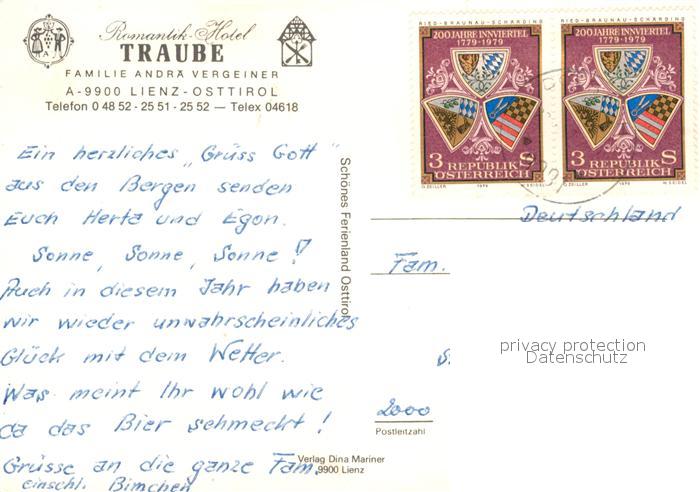 Romantik-Hotel
TRAUBE
FAMILIE ANDRÄ VERGEINER
A-9900 LIENZ-OSTTIROL
Telefon 0 48 52 - 25 51 - 25 52 — Telex 04618
Ein herzliches "Grüss Gott"
aus den Bergen senden
Euch Herta und Egon.
Sonne, Sonne, Sonne!
Auch in diesem Jahr haben
wir wieder unwahrscheinliches
Glück mit dem Wetter.
Was meint Ihr wohl wie
da das Bier schmeckt!
Grüsse an die ganze Fam.
einschl. Bimchen
Schönes Ferienland Osttirol
Verlag Dina Mariner
9900 Lienz
RIED-BRAUNAU-SCHÄRDING
200 JAHRE INNVIERTEL
1779-1979
3 REPUBLIK S
ÖSTERREICH
O. ZEILLER 1979 W. SEIDEL
RIED-BRAUNAU-SCHÄRDING
200 JAHRE INNVIERTEL
1779-1979
3 REPUBLIK S
ÖSTERREICH
O. ZEILLER 1979 W. SEIDEL
Deutschland
Fam.
privacy protection
Datenschutz
2000
Postleitzahl